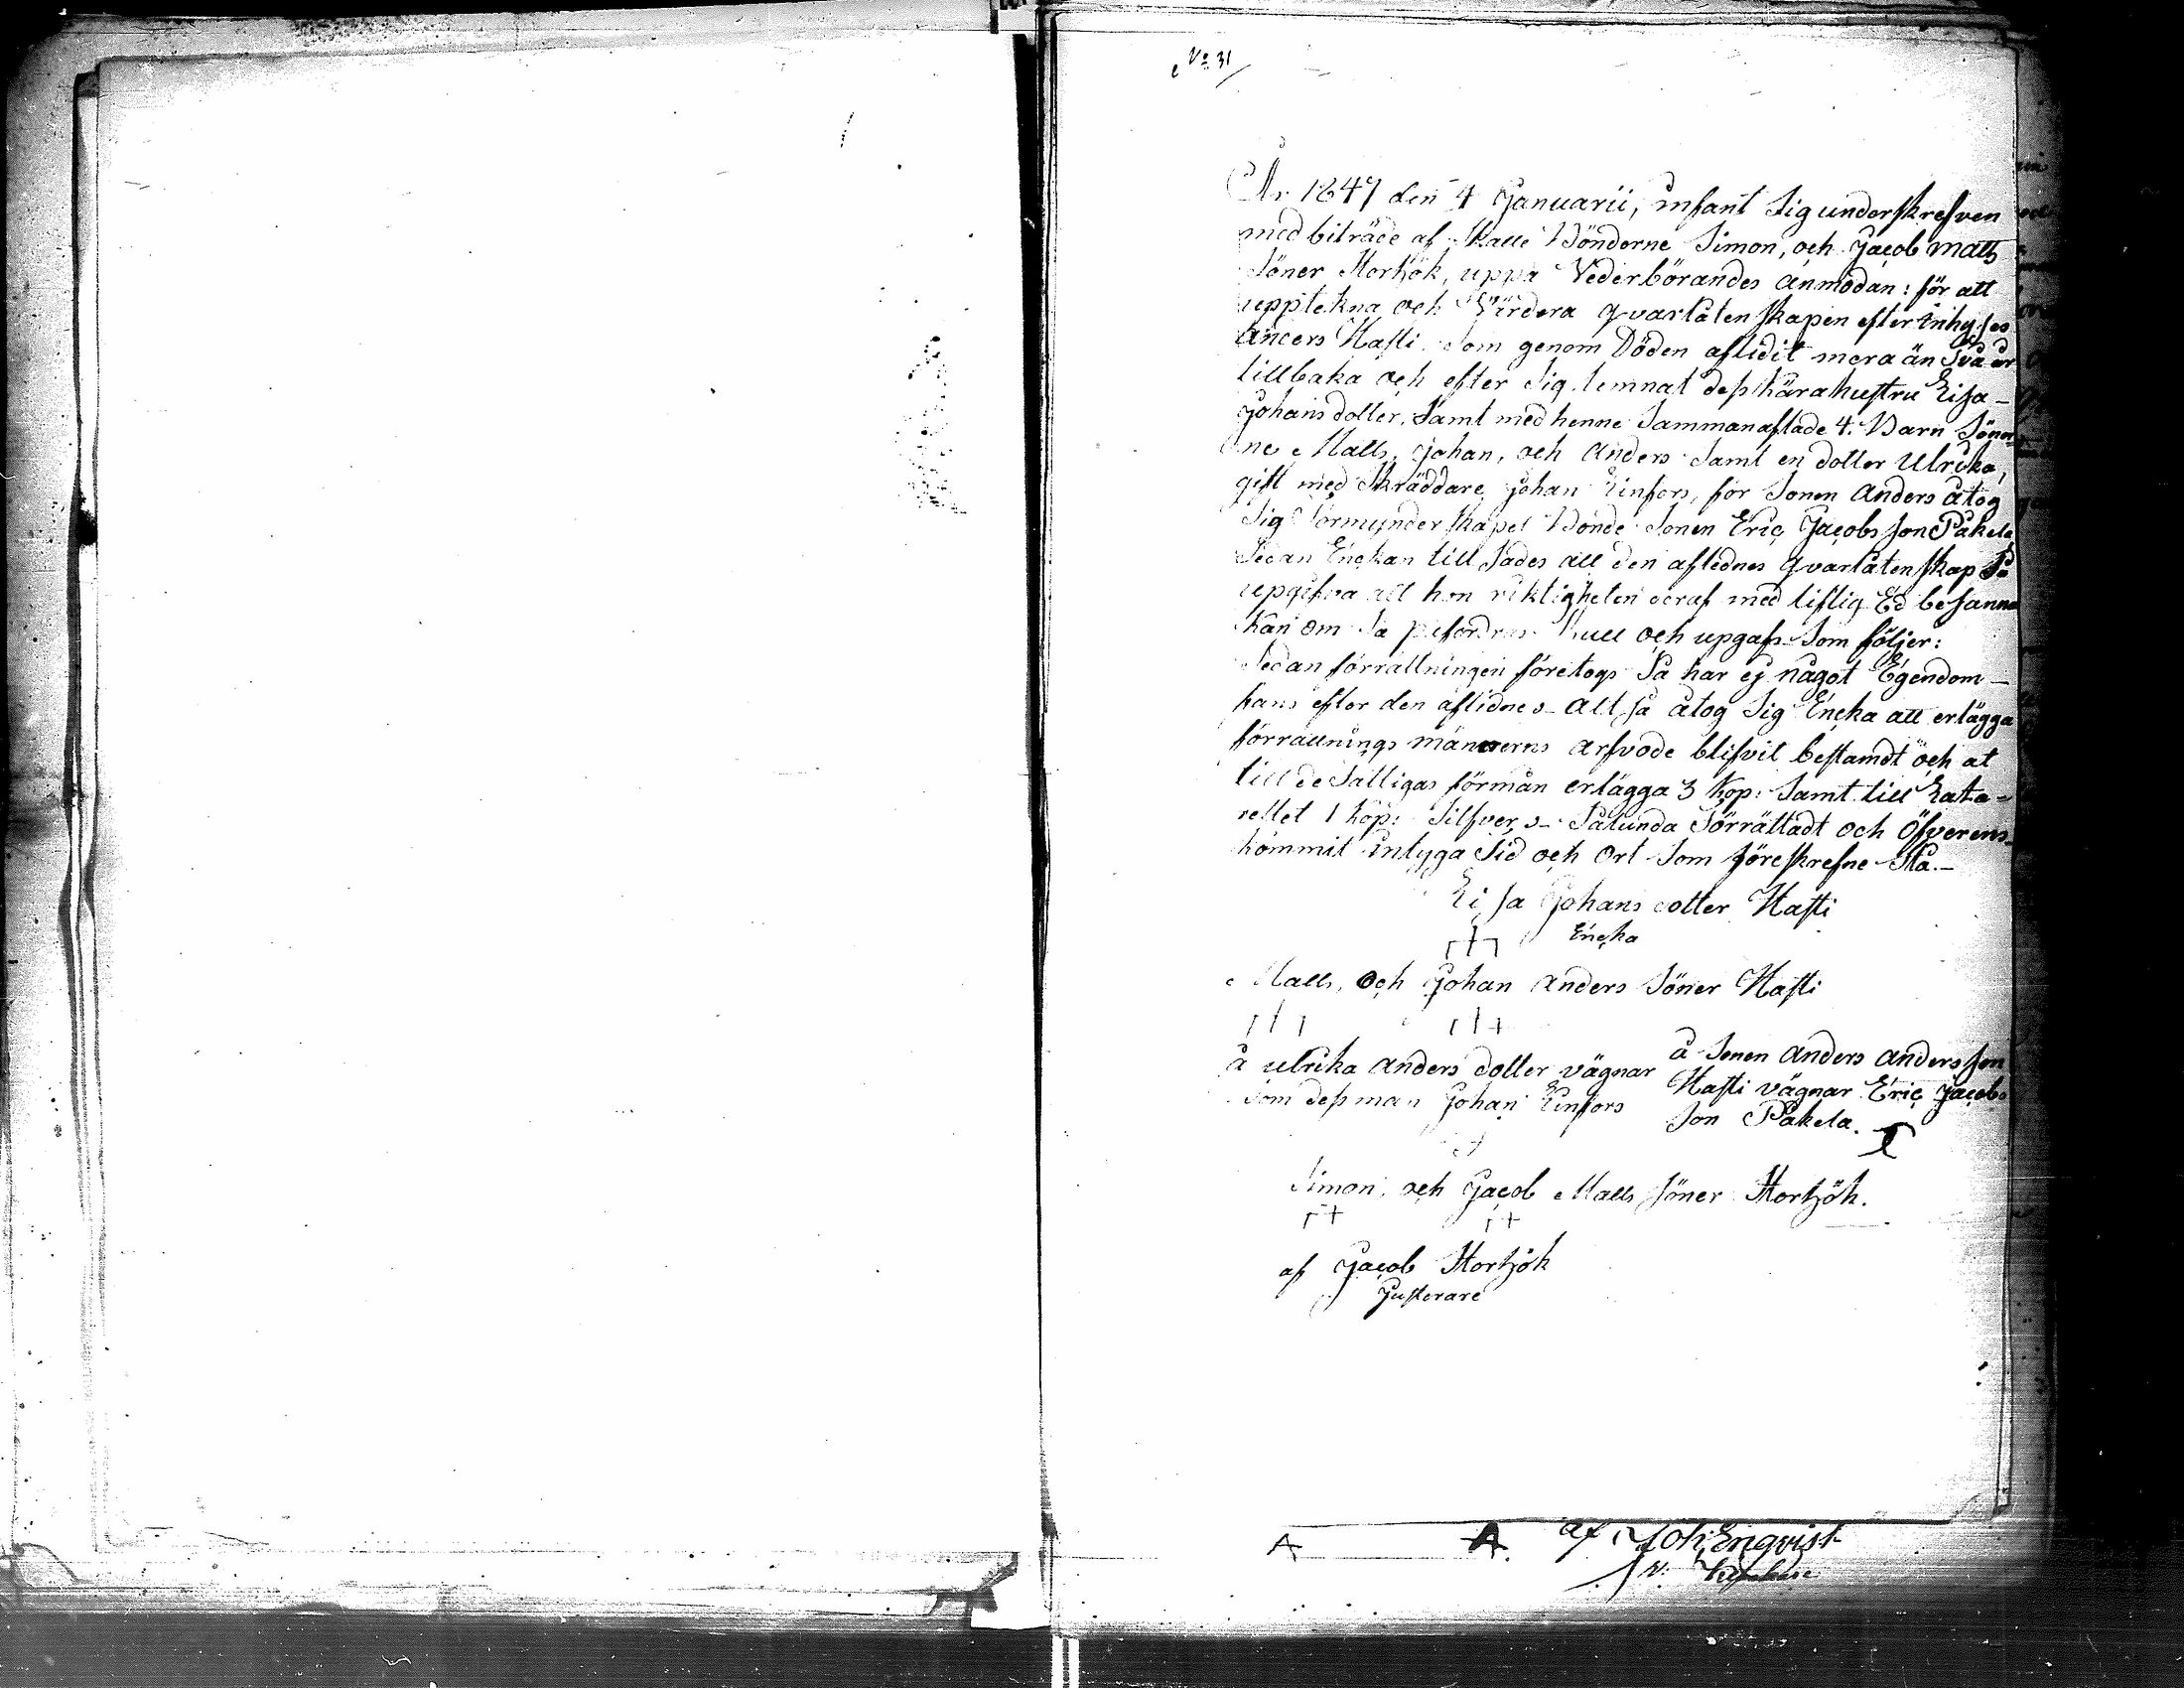 No 31
År 1847 den 4 Januarii, infant Sig underskrefven
med biträde af Skatte Bönderne Simon, och Jacob Matts
Söner Stortjök, uppå Vederbörandes anmodan: för att
upptekna och Värdera qvarlåtenskapen efter inhyses
Anders Hasti. Som genom Döden aflidit mera än två år
tillbaka och efter sig lemnat dess kära hustru Lisa
Johans dotter, Samt med henne Sammanaflade 4. Barn Söner-
ne Matts, Johan, och Anders Samt en dotter Ulrika,
gift med Skräddare Johan Linfors, för Sonen Anders åtog
Sig Förmynderskapet Bonde Sonen Eric Jacobsson Pakela
Sedan Enckan till Sades all den aflednes qvarlåtenskap Så
upgifva att hon riktigheten deraf med liflig Ed besanna
kan om Så påfordras Skull och upgafs Som följer:
Sedan förrättningen företogs Så har ej något Egendom
fans efter den aflidnes Allså åtog Sig Encka att erlägga
förrättnings männerns arfvode blifvit bestämdt och at
till de Fattigas förmån erlägga 3 Kop: Samt till Lata-
rettet 1 kop: Silfver Sålunda Förrättadt och Öfverens-
kommit intyga Tid och Ort Som föreskrefne Stå.
Lisa Johans dotter Hasti
Encka
Matts, Och Johan Anders Söner Hasti
å Ulrika Anders dotter vägnar
Som dess man Johan Linfors
å Sonen Anders Andersson
Hasti vägnar Eric Jacobs
Son Pakela.
Simon, och Jacob Matts Söner Stortjök.
af Jacob Stortjök
Justerare
af Joh: Enqvist